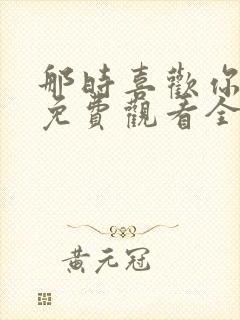 那時喜歡你
免費觀看全
黃元冠